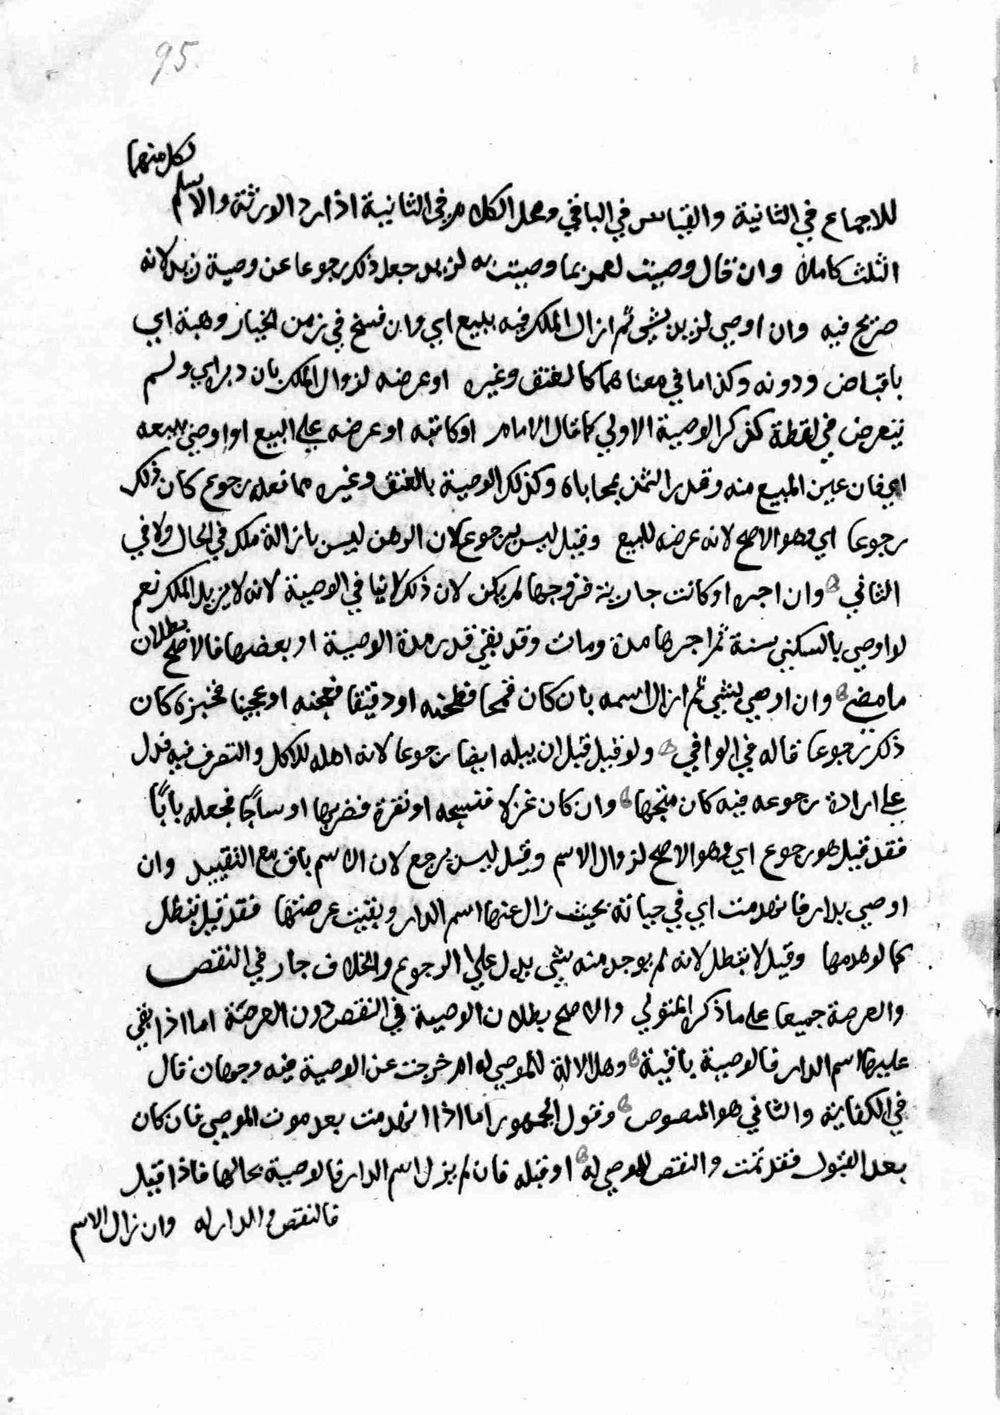 95
لكل منهما
للاجماع في الثانية والقياس في الباقي ومحل الكلام في الثانية اذا رد الورثة والا سلم
الثلث كاملا وان قال وصيت لعمرو بما وصيت به لزيد جعل ذكر رجوعا عن وصية زيد لانه
صريح فيه وان اوصي لزيد بشي ثم ازال الملك فيه ببيع اي وان فسخ في زمن الخيار وهبة اي
باقباض ودونه وكذا ما في معناهما كالعتق وغيره او عرضه لزوال الملك بان دبر اي ولم
يتعرض في لفظة لذكر الوصية الاولي كما قال الامام او كاتبه او عرضه علي البيع او اوصي ببيعه
اي فان عين المبيع منه وقدر الثمن بمحاباة وكذلك الوصية بالعتق وغيره مما فعله رجوع كان ذلك
رجوعا اي وهو الاصح لانه عرضه للبيع وقيل ليس برجوع لان الرهن ليس بازالة ملك في الحال ولا في
الثاني وان اجره او كانت جارية فزوجها لم يكن لان ذلك لا ينافي الوصية لانه لا يزيل الملك نعم
لو اوصي بالسكني سنة ثم اجرها مدة ومات وقد بقي قدر مدة الوصية او بعضها فالاصح بطلان
ما مضي وان اوصي بشي ثم ازال اسمه بان كان قمحا فطحنه او دقيقا فعجنه او عجينا فخبزه كان
ذلك رجوعا قاله في الوافي ولو قيل قبل ان يبله ايضا رجوعا لانه اهله للاكل والتصرف فيه فدل
علي ارادة رجوعه فيه كان متجها وان كان غزلا فنسجه او نقرة فضربها او ساجا فجعله بابا
فقد قيل هو رجوع اي وهو الاصح لزوال الاسم وقيل ليس برجع لان الاسم باق مع التقييد وان
اوصي بدار فانهدمت اي في حياته بحيث زال عنها اسم الدار وبقيت عرصتها فقد قيل تبطل
كما لو هدمها وقيل لا تبطل لانه لم يوجد منه شي يدل علي الرجوع والخلاف جار في النقص
والعرصة جميعا علي ما ذكر المتولي والاصح بطلان الوصية في النقص دون العرصة اما اذا بقي
عليها اسم الدار فالوصية باقية وهل الالة للموصي له ام خرجت عن الوصية فيه وجهان قال
في الكفاية والثاني هو المنصوص وقول الجمهور اما اذا انهدمت بعد موت الموصي فان كان
بعد القبول فقد تمت والنقص للموصي له او قبله فان لم يزل اسم الدار فالوصية بحالها فاذا قبل
فالنقص والدار له وان زال الاسم